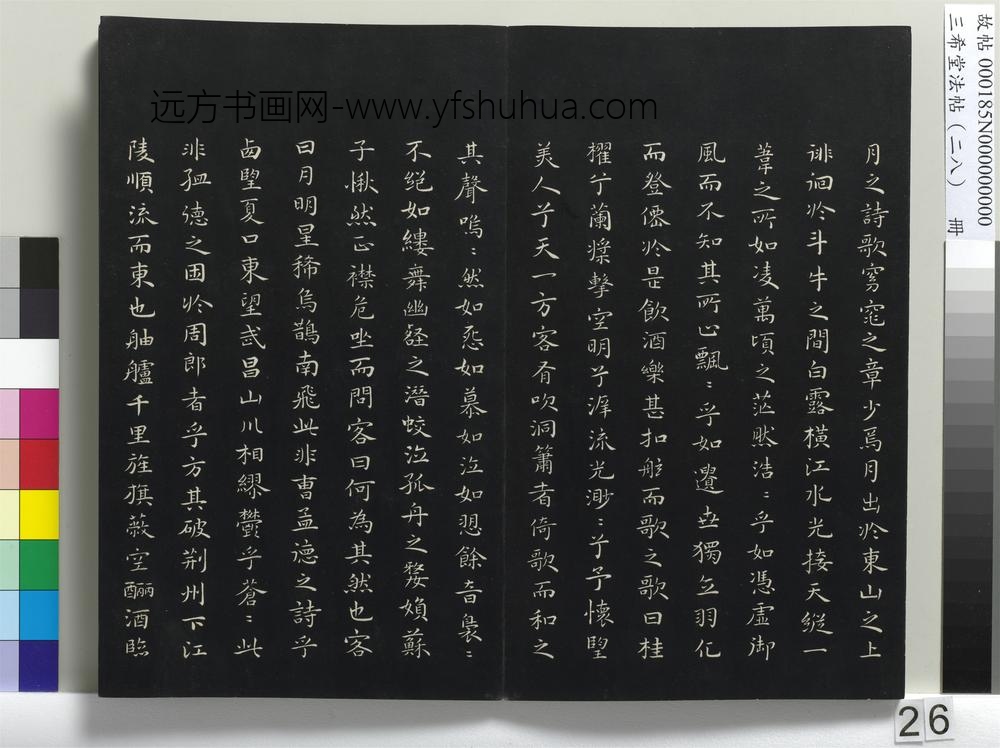 月之詩歌窈窕之章少焉月出於東山之上
徘徊於斗牛之間白露橫江水光接天縱一
葦之所如凌萬頃之茫然浩〻乎如馮虛御
風而不知其所止飄〻乎如遺世獨立羽化
而登僊於是飲酒樂甚扣舷而歌之歌曰桂
櫂兮蘭槳擊空明兮泝流光渺〻兮予懷望
美人兮天一方客有吹洞簫者倚歌而和之
其聲嗚〻然如怨如慕如泣如愬餘音裊〻
不絕如縷舞幽壑之潛蛟泣孤舟之嫠婦蘇
子愀然正襟危坐而問客曰何為其然也客
曰月明星稀烏鵲南飛此非曹孟德之詩乎
西望夏口東望武昌山川相繆鬱乎蒼〻此
非孟德之困於周郎者乎方其破荊州下江
陵順流而東也舳艫千里旌旗蔽空釃酒臨
远方书画网-www.yfshuhua.com
故帖 000185N000000000
三希堂法帖（二八） 冊
26